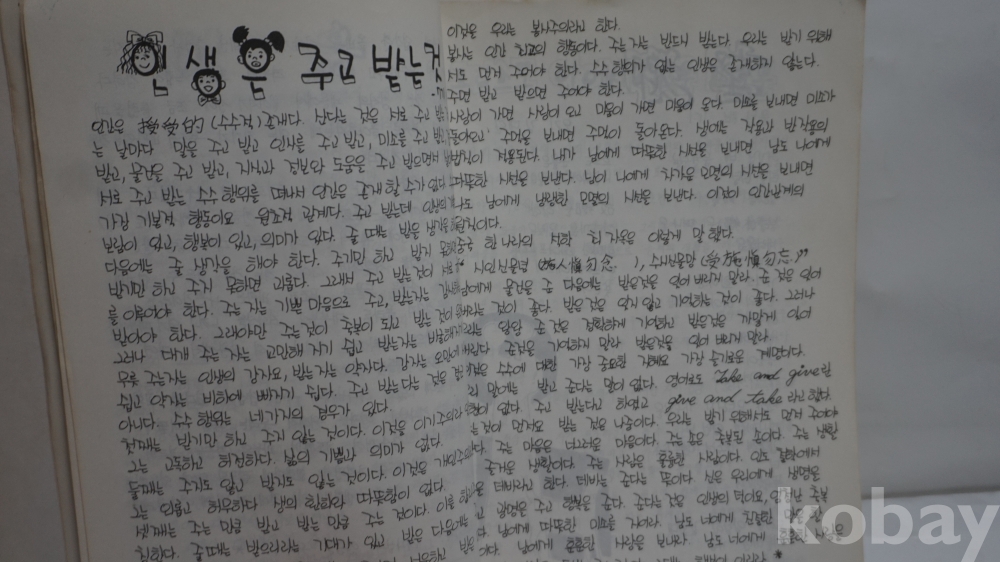 인생은 주고 받는 것
인간은 授受的 (수수적) 존재다. 산다는 것은 서로 주고 받
는 날마다 말을 주고 받고 인사를 주고 받고, 미소를 주고 받
받고, 물건을 주고 받고, 지식과 정보와 도움은 주고 받으면서
서로 주고 받는 수수 행위를 떠나서 인간은 존재할 수가 없다.
가장 기본적 행동이요 원초적 관계다. 주고 받는데 인생의
보람이 있고, 행복이 있고, 의미가 있다. 줄 때는 받을 생각을
다음에는 줄 생각을 해야 한다. 주기만 하고 받지 못해
받기만 하고 주지 못하면 괴롭다. 그래서 주고 받는 것이
를 이루어야 한다. 주는 자는 기쁜 마음으로 주고, 받는자는 감
받아야 한다. 그래야만 주는 것이 축복이 되고 받는 것이
그러나 대개 주는 자는 교만해 지기 쉽고 받는자는 비
무릇 주는자는 인생의 강자요, 받는 자는 약자다. 강자는 오만
쉽고 약자는 비하에 빠지기 쉽다. 주고 받는다는 것은
아니다. 수수 행위는 네가지의 경우가 있다.
첫째는 받기만 하고 주지 않는 것이다. 이것을 이기주의라
그는 고독하고 허전하다. 삶의 기쁨과 의미가 없다.
둘째는 주지도 않고 받지도 않는 것이다. 이것을
그는 외롭고 허무하다 생의 환희와 따뜻함이 없다.
셋째는 주는 만큼 받고 받는 만큼 주는 것이다. 이를
줄때는 받으리라는 기대가 있고 받은 다음에는
이것을 우리는 봉사주의라고 한다.
봉사는 인간 최고의 행동이다. 주는 자는 반드시 받는다. 우리는 받기 위해
서도 먼저 주어야 한다. 수수 행위가 없는 인생은 존재하지 않는다.
주면 받고 받으면 주어야 한다.
사랑이 가면 사랑이 오고 마음이 가면 마음이 온다. 미소를 보내면 미소가
돌아오고 주먹을 보내면 주먹이 돌아온다. 생에는 작용과 반작용의
법칙이 적용된다. 내가 남에게 따뜻한 시선을 보내면 남도 나에게
따뜻한 시선을 보낸다. 남이 나에게 차가운 모멸의 시선을 보내면
나도 남에게 냉랭한 모멸의 시선을 보낸다. 이것이 인간관계의
법칙이다.
한나라의 석학 최자옥은 이렇게 말했다.
"시인신물념 (施人愼勿念.), 수시신물망 (受施愼勿忘.)"
남에게 물건을 준 다음에는 받은것은 잊어 버리지 말라. 준 것은 잊어
버리는 것이 좋다. 받은 것은 잊지 않고 기억하는 것이 좋다. 그러나
왕왕 준 것은 정확하게 기억하고 받은것은 까맣게 잊어
버린다. 준것을 기억하지 말라 받은것을 잊어 버리지 말라
것은 수수에 대한 가장 중요한 지혜요 가장 슬기로운 계명이다.
리 말에는 받고 준다는 말이 없다. 영어로도 take and give란
말이 없다. 주고 받는다고 하였고 give and take 라고 한다.
는 것이 먼저요 받는 것은 나중이다. 우리는 받기 위해서도 먼저 주어야
다. 주는 마음은 너그러운 마음이다. 주는 손은 축복된 손이다. 주는 생활
즐거운 생활이다. 주는 사람은 훌륭한 사람이다. 인도 철학에서
을 데바라고 한다. 데바는 준다는 뜻이다. 신은 우리에게 생명을
고 광명을 주고 행복을 준다. 준다는 것은 인생의 덕이요,
남에게 따뜻한 미소를 지어라 남도 너에게 친절한
다. 남에게 훌륭한 사랑을 보내라 남도 너에게
kobay